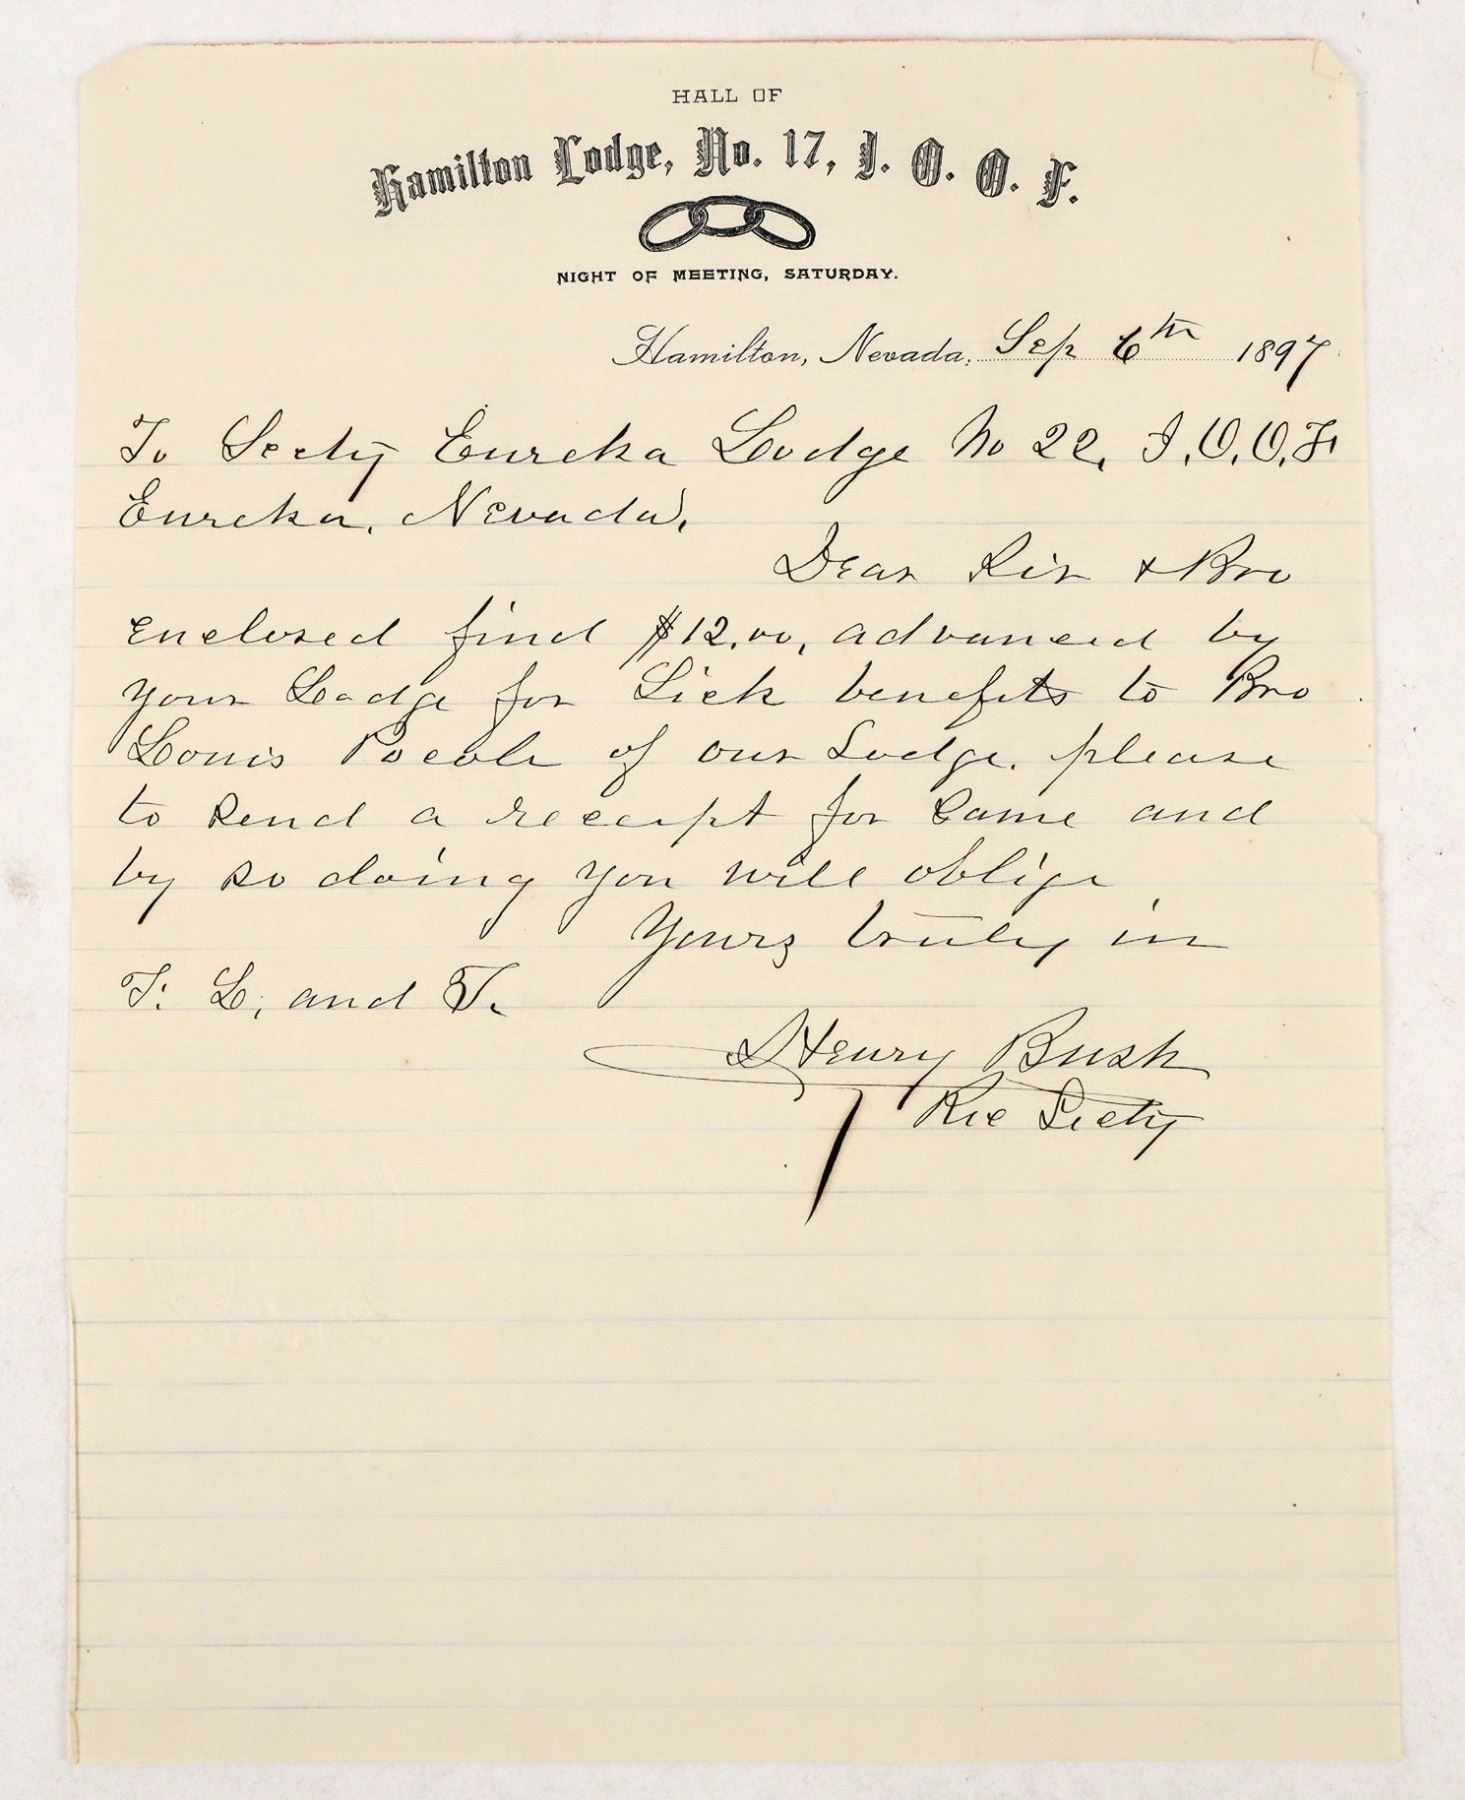 HALL OF
Hamilton Lodge, No. 17, I. O. O. F.
NIGHT OF MEETING, SATURDAY.
Hamilton, Nevada, Sep 6th 1897
To Secty Eureka Lodge No 22, I,O,O,F,
Eureka, Nevada,
Dear Sir & Bro
enclosed find $12.00, advanced by
your Lodge for Sick benefits to Bro
Louis of our Lodge. please
to send a receipt for same and
by so doing you will oblige
Yours truly in
F. L. and T.
Henry Bush
Rec Secty